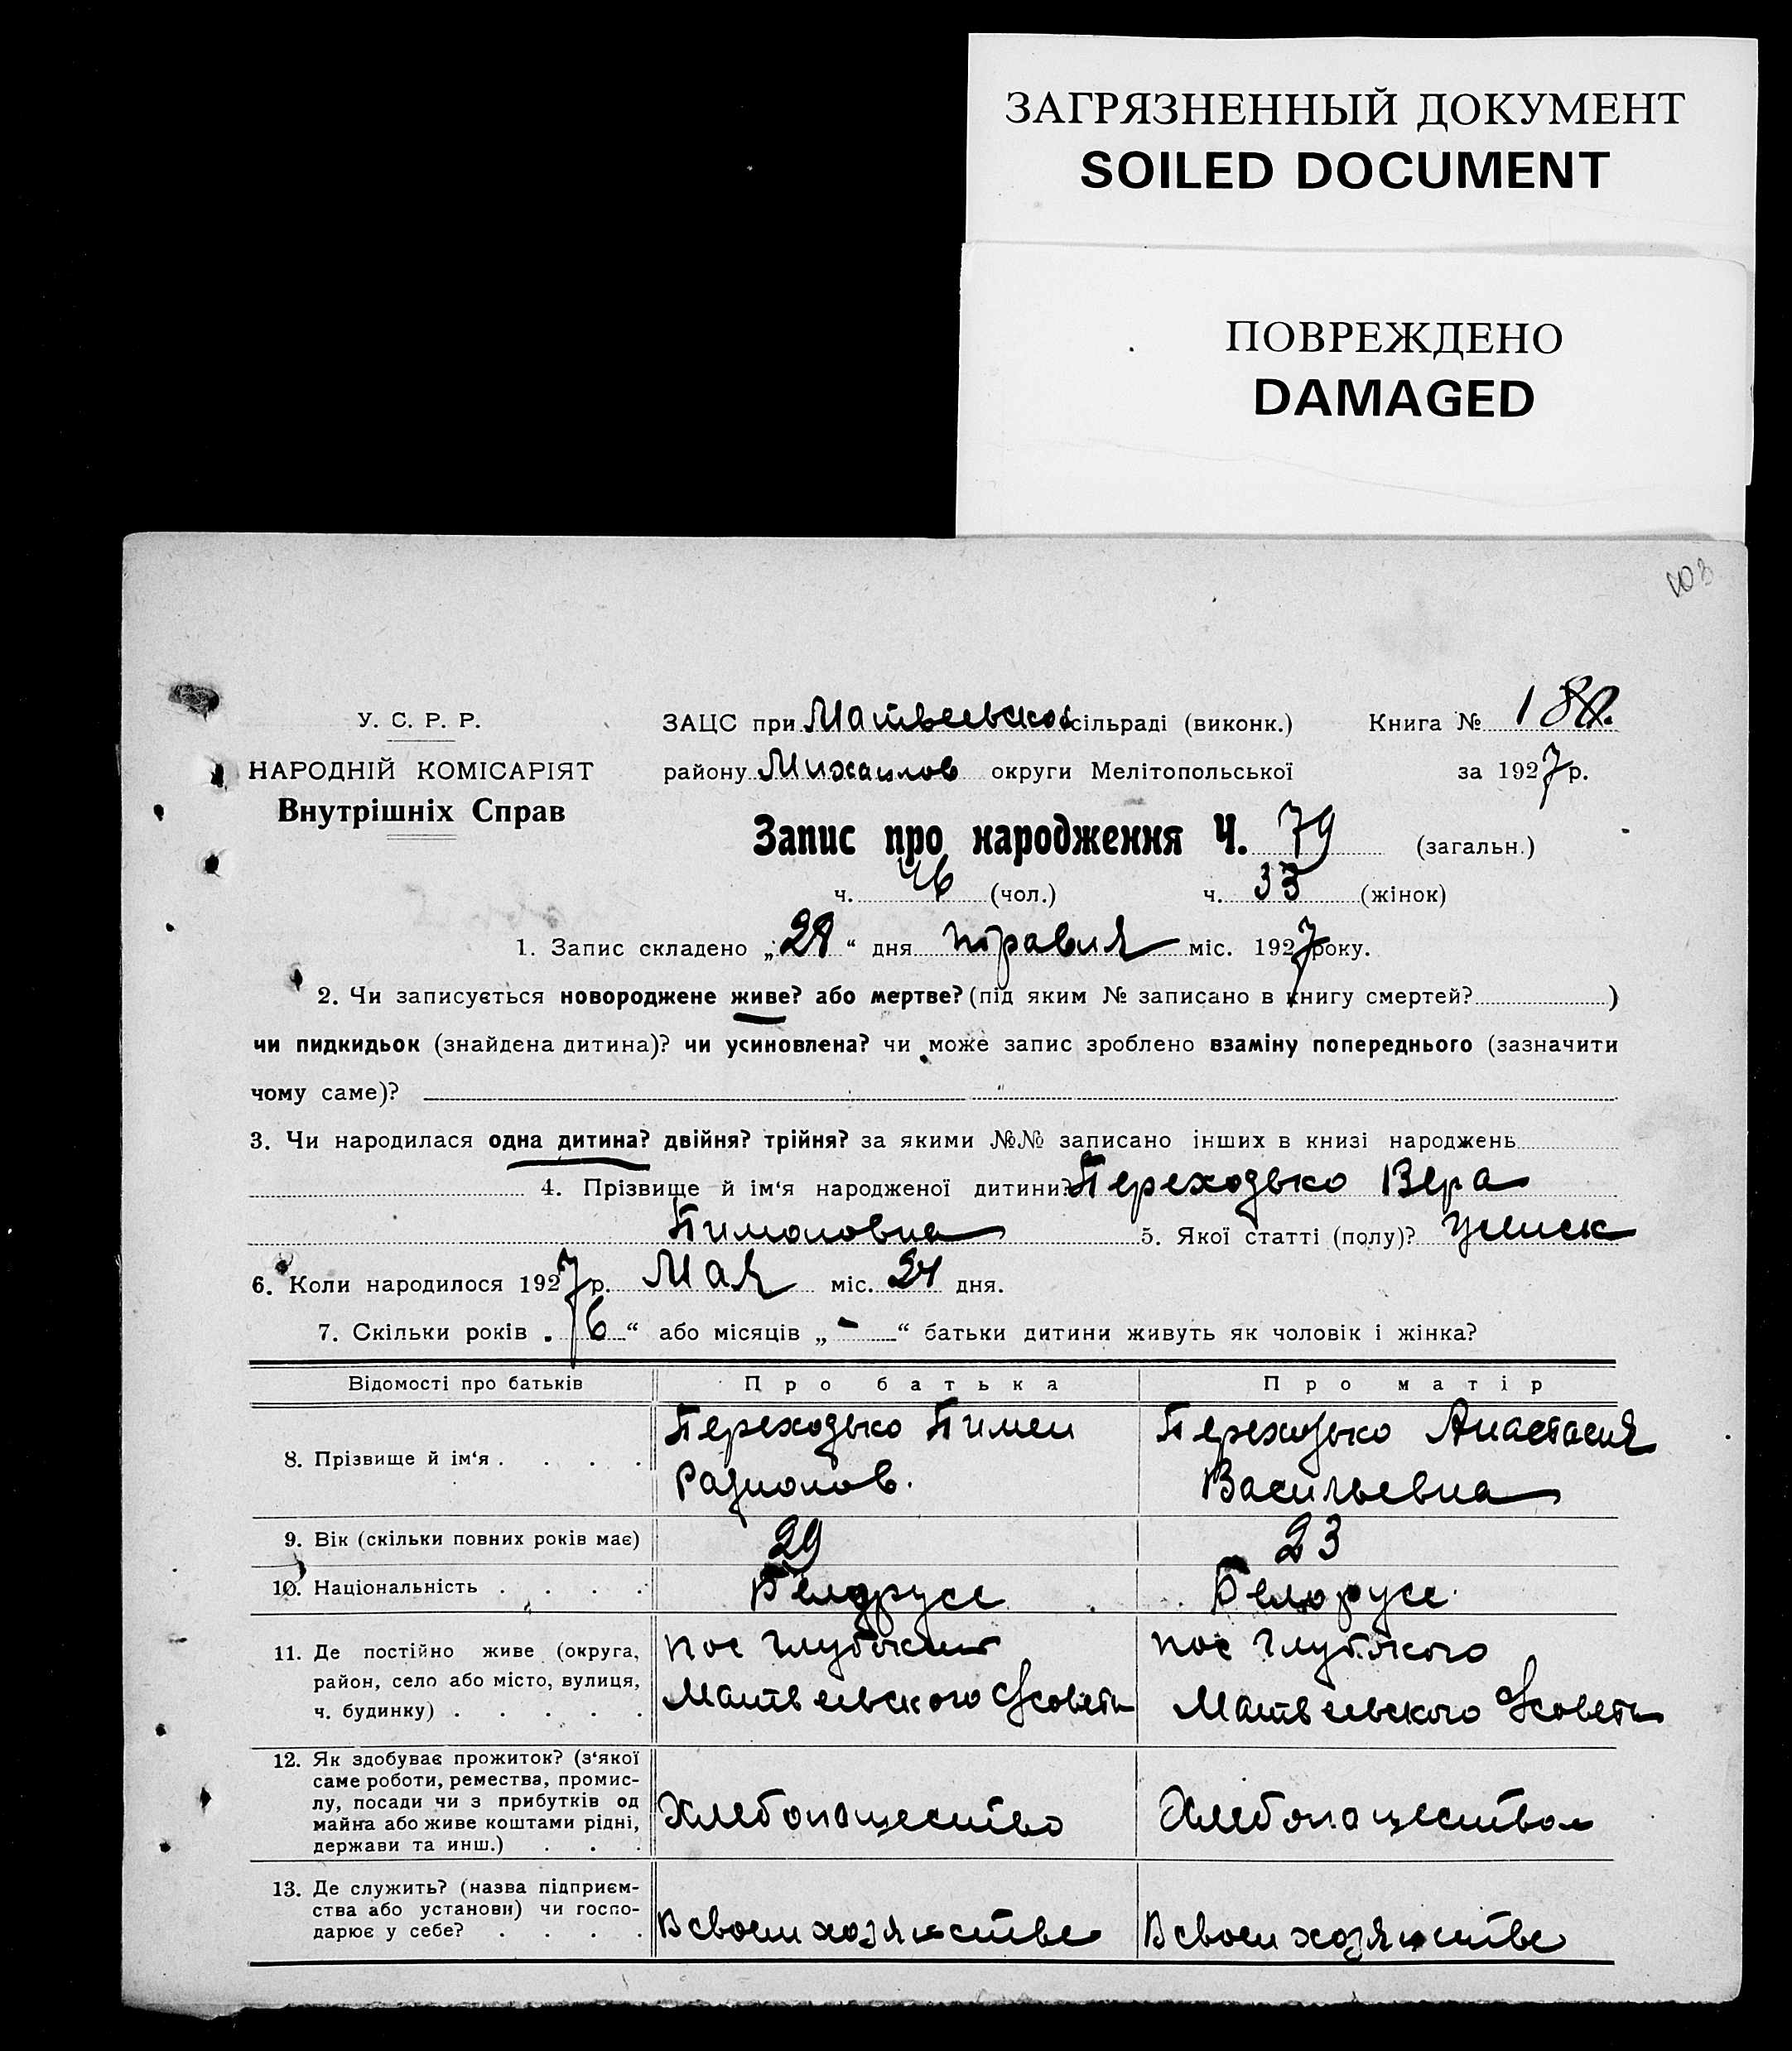 ЗАГРЯЗНЕННЫЙ ДОКУМЕНТ
SOILED DOCUMENT
ПОВРЕЖДЕНО
DAMAGED
У. С. Р. Р.
НАРОДНІЙ КОМІСАРІЯТ
Внутрішніх Справ
ЗАЦС при Матвеевской сільраді (виконк.) Книга №
району Михайлов округи Мелітопольської за 1927 р.
Запис про народження Ч. 79 (загальн.)
ч. 46 (чол.) ч. 33 (жінок)
1. Запис складено „28“ дня міс. 1927 року.
2. Чи записується новороджене живе? або мертве? (під яким № записано в книгу смертей? )
чи пидкидьок (знайдена дитина)? чи усиновлена? чи може запис зроблено взаміну попереднього (зазначити
чому саме)?
3. Чи народилася одна дитина? двійня? трійня? за якими №№ записано інших в книзі народжень
4. Прізвище й ім‘я народженої дитини? Переходько Вера
Пимоновна 5. Якої статті (полу)? женск
6. Коли народилося 1927 р. Мая міс. 24 дня.
7. Скільки років „6“ або місяців „-“ батьки дитини живуть як чоловік і жінка?
Відомості про батьків Про батька Про матір
8. Прізвище й ім‘я . . . . Переходько Пимен Переходько Анастасия
Радионов. Васильевна
9. Вік (скільки повних років має) 29 23
10. Національність . . . . Белорусс Белорусс
11. Де постійно живе (округа, пос Глубокий пос Глубокого
район, село або місто, вулиця, Матвеевского С/совета Матвеевского С/совета
ч. будинку) . . . . .
12. Як здобуває прожиток? (з‘якої
саме роботи, ремества, промис-
лу, посади чи з прибутків од Хлебопашество Хлебопашество
майна або живе коштами рідні,
держави та инш.) . . .
13. Де служить? (назва підприєм-
ства або установи) чи госпо-
дарює у себе? . . . . В своем хозяйстве В своем хозяйстве